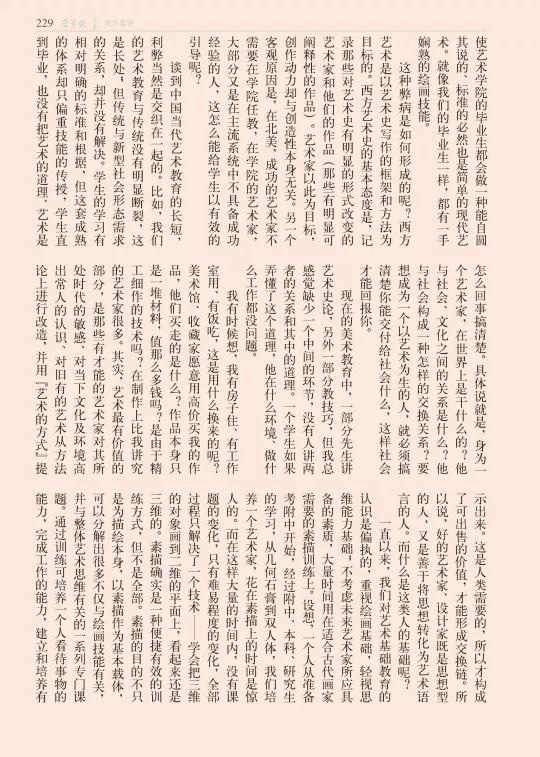 229
使艺术学院的毕业生都会做一种能自圆
其说的、标准的必然也是简单的现代艺
术。就像我们的毕业生一样，都有一手
娴熟的绘画技能。
这种弊病是如何形成的呢？西方
艺术是以艺术史写作的框架和方法为
目标的。西方艺术史的基本态度是，记
录那些对艺术史有明显的形式改变的
艺术家和他们的作品（那些有明显可
阐释性的作品）。艺术家以此为目标，
创作动力却与创造性本身无关。另一个
客观原因是，在北美，成功的艺术家不
需要在学院任教，在学院的艺术家，
大部分又是在主流系统中不具备成功
经验的人，这怎么能给学生以有效的
引导呢？
谈到中国当代艺术教育的长短，
利弊当然是交织在一起的。比如，我们
的艺术教育与传统没有明显断裂，这
是长处，但传统与新型社会形态需求
的关系，却并没有解决。学生的学习有
相对明确的标准和根据，但这套成熟
的体系却只偏重技能的传授，学生直
到毕业，也没有把艺术的道理、艺术是
怎么回事搞清楚。具体说就是，身为一
个艺术家，在世界上是干什么的？他
与社会、文化之间的关系是什么？他
与社会构成一种怎样的交换关系？要
想成为一个以艺术为生的人，就必须搞
清楚你能交付给社会什么，这样社会
才能回报你。
现在的美术教育中，一部分先生讲
艺术史论，另外一部分教技巧，但我总
感觉缺少一个中间的环节，没有人讲两
者的关系和其中的道理。一个学生如果
弄懂了这个道理，他在什么环境、做什
么工作都没问题。
我有时候想，我有房子住、有工作
室用、有饭吃，这是用什么换来的呢？
美术馆、收藏家愿意用高价买我的作
品，他们买走的是什么？作品本身只
是一堆材料，值那么多钱吗？是由于精
工细作的技术吗？在制作上比我讲究
的艺术家很多。其实，艺术最有价值的
部分，是那些有才能的艺术家对其所
处时代的敏感、对当下文化及环境高
出常人的认识、对旧有的艺术从方法
论上进行改造，并用『艺术的方式』提
示出来。这是人类需要的，所以才构成
了可出售的价值，才能形成交换链。所
以说，好的艺术家、设计家既是思想型
的人，又是善于将思想转化为艺术语
言的人。而什么是这类人的基础呢？
一直以来，我们对艺术基础教育的
认识是偏执的，重视绘画基础，轻视思
维能力基础，不考虑未来艺术家所应具
备的素质，大量时间用在适合古代画家
需要的素描训练上。设想，一个人从准备
考附中开始，经过附中、本科、研究生
的学习，从几何石膏到双人体，我们培
养一个艺术家，花在素描上的时间是惊
人的。而在这样大量的时间内，没有课
题的变化，只有难易程度的变化，全部
过程只解决了一个技术——学会把三维
的对象画到二维的平面上，看起来还是
三维的。素描确实是一种便捷有效的训
练方式，但不是全部。素描的目的不只
是为描绘本身，以素描作为基本载体，
可以分解出很多不仅与绘画技能有关，
并与整体艺术思维有关的一系列专门课
题。通过训练可培养一个人看待事物的
能力，完成工作的能力，建立和培养有